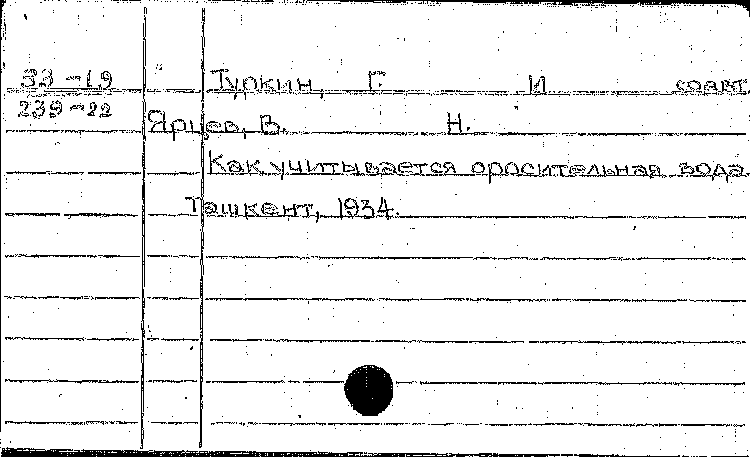 33-19 Туркин, Г. И соавт.
239-22
Ярцев, В. Н.
Как учитывается оросительная вода.
Ташкент, 1934.